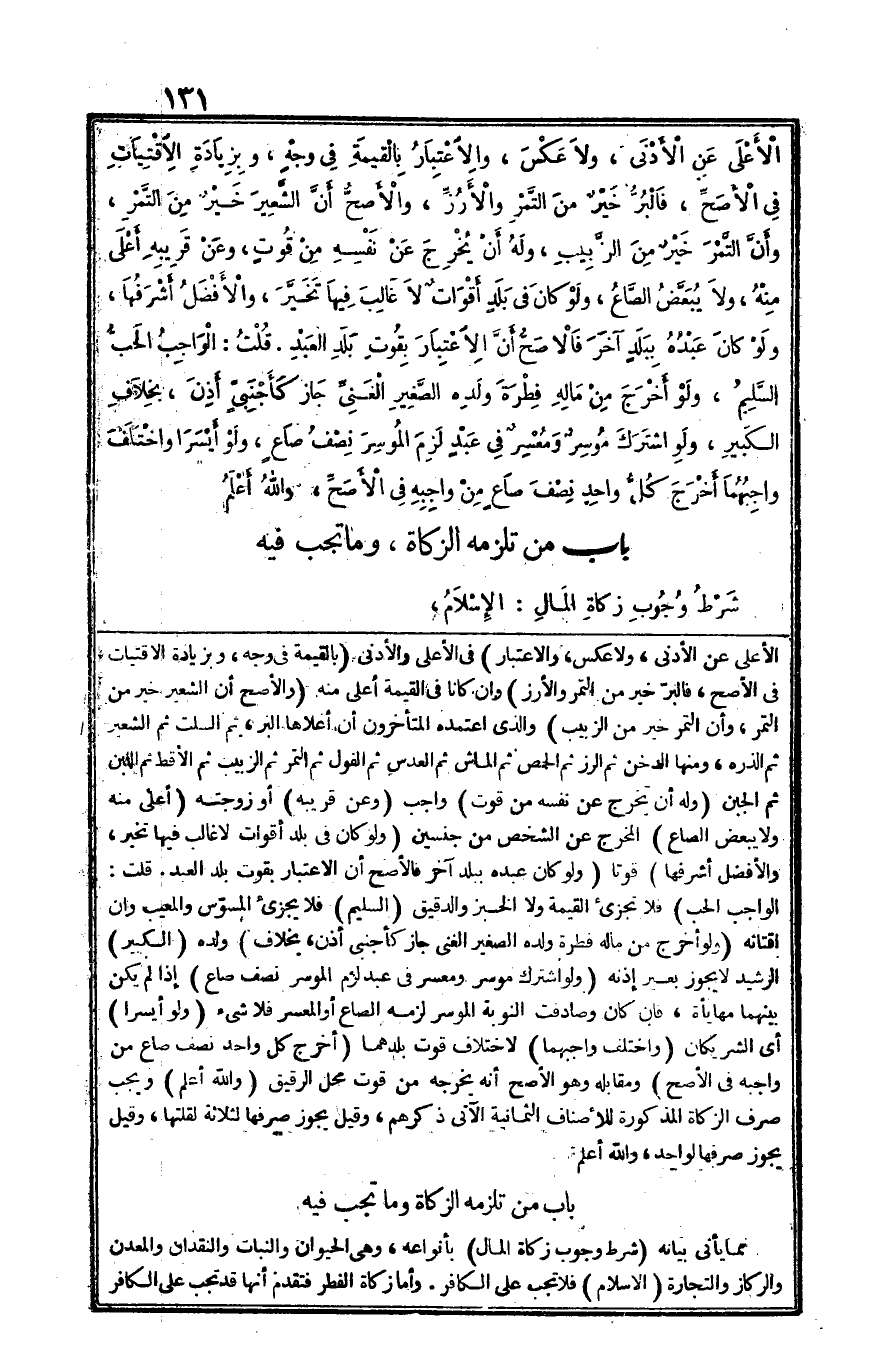 ١٣١
الْأَعْلَى عَنِ الْأَدْنَى ، ولاَ عَكْسَ ، والِاعْتِبَارُ بِالْقِيمَةِ فِي وجْهٍ ، و بِزِيَادَةِ الِاقْتِيَاتِ
فِي الْأَصَحِّ ، فَالْبُرُّ خَيْرٌ منَ التَّمْرِ والْأَرُزِّ ، والْأَصحُّ أَنَّ الشَّعِيرَ خَيْرٌ مِنَ التَّمْرِ ،
وأَنَّ التَّمْرَ خَيْرٌ مِنَ الزَّبِيبِ ، ولَهُ أَنْ يُخْرِجَ عَنْ نَفْسِهِ مِنْ قُوتٍ، وعَنْ قَرِيبِهِ أَعْلَى
مِنْهُ ، ولاَ يُبَعَّضُ الصَّاعُ ، ولَوْ كان فى بَلَدٍ أَقْوَاتٌ لاَ غَالِبَ فِيهَا تَخَيَّرَ ، والْأَفْضَلُ أَشْرَفُهَا ،
ولَوْ كانَ عَبْدُهُ بِبَلَدٍ آخَرَ فَالْأصَحُّ أَنَّ الِاعْتِبَارَ بِقُوتِ بَلَدِ العَبْدِ . قُلْتُ : الْوَاجِبُ الحَبُّ
السَّلِيمُ ، ولَوْ أَخْرَجَ مِنْ مَالِهِ فِطْرَةَ ولَدِهِ الصَّغِيرِ الْغَنِيِّ جَاز كَأَجْنَبِيٍّ أَذِنَ ، بِخِلاَفِ
الكَبيرِ ، ولَوِ اشْتَرَكَ مُوسِرٌ وَمُعْسِرٌ فِي عَبْدٍ لَزِمَ المُوسِرَ نِصْفُ صَاعٍ ، ولَوْ أَيْسَرَا واخْتَلَفَ
واجِبُهُمَا أَخْرَجَ كُلُّ واحِدٍ نِصْفَ صَاعٍ مِنْ واجِبِهِ فِي الْأَصَحِّ ، واللهُ أَعْلَمُ
باب من تلزمه الزكاة ، وما تجب فيه
شَرْطُ وُجُوبِ زكاةِ المَالِ : الإِسْلاَمُ ،
الأعلى عن الأدنى ، ولا عكس، والاعتبار ) فى الأعلى والأدنى (بالقيمة فى وجه ، وبزيادة الاقتيات
فى الأصح ، فالبرّ خير من التمر والأرز ) وان كانا فى القيمة أعلى منه (والأصح أن الشعير خير من
التمر ، وأن التمر خير من الزبيب ) والذى اعتمده المتأخرون أن أعلاها البر ، ثم السلت ثم الشعير
ثم الذره ، ومنها الدخن ثم الرز ثم الحمص ثم الماش ثم العدس ثم الفول ثم التمر ثم الزبيب ثم الأقط ثم اللبن
ثم الجبن (وله أن يخرج عن نفسه من قوت) واجب (وعن قريبه) أو زوجته (أعلى منه
ولا يبعض الصاع ) المخرج عن الشخص من جنسين ( ولو كان فى بلد أقوات لا غالب فيها تخير ،
والأفضل أشرفها ) قوتا ( ولو كان عبده ببلد آخر فالأصح أن الاعتبار بقوت بلد العبد . قلت :
الواجب الحب ) فلا تجزئ القيمة ولا الخبز والدقيق ( السليم ) فلا يجزئ المسوّس والمعيب وان
اقتاته (ولو أخرج من ماله فطرة ولده الصغير الغنى جاز كأجنبى أذن، بخلاف ) ولده ( الكبير )
الرشيد لا يجوز بغير إذنه ( ولو اشترك موسر ومعسر فى عبد لزم الموسر نصف صاع ) إذا لم يكن
بينهما مهايأة ، فإن كان وصادفت النوبة الموسر لزمه الصاع أو المعسر فلا شىء ( ولو أيسرا )
أى الشريكان ( واختلف واجبهما ) لاختلاف قوت بلدهما ( أخرج كل واحد نصف صاع من
واجبه فى الأصح ) ومقابله وهو الأصح أنه يخرجه من قوت محل الرقيق ( والله أعلم ) ويجب
صرف الزكاة المذكورة للأصناف الثمانية الآتى ذكرهم ، وقيل يجوز صرفها لثلاثة لقلتها ، وقيل
يجوز صرفها لواحد ، والله أعلم
باب من تلزمه الزكاة وما تجب فيه
مما يأتى بيانه (شرط وجوب زكاة المال) بأنواعه ، وهى الحيوان والنبات والنقدان والمعدن
والركاز والتجارة ( الاسلام ) فلا تجب على الكافر . وأما زكاة الفطر فتقدم أنها قد تجب على الكافر